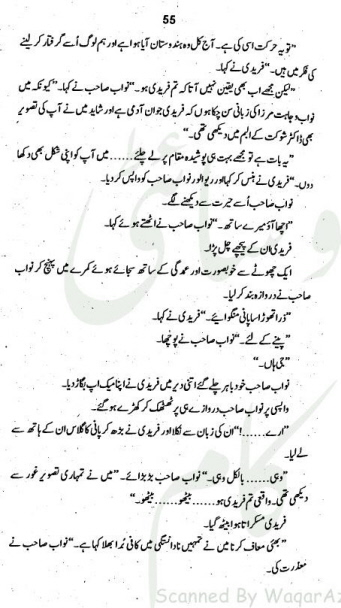 55
”تو یہ حرکت اسی کی ہے۔ آج کل وہ ہندوستان آیا ہوا ہے اور ہم لوگ اُسے گرفتار کر لینے
کی فکر میں ہیں۔“ فریدی نے کہا۔
”لیکن مجھے اب بھی یقین نہیں آتا کہ تم فریدی ہو۔“ نواب صاحب نے کہا۔ ”کیونکہ میں
نواب وجاہت مرزا کی زبانی سن چکا ہوں کہ فریدی جوان آدمی ہے اور شاید میں نے آپ کی تصویر
بھی ڈاکٹر شوکت کے البم میں دیکھی تھی۔“
”یہ بات ہے تو مجھے بہت ہی پوشیدہ مقام پر لے چلئے...... میں آپ کو اپنی شکل بھی دکھا
دوں۔“ فریدی نے ہنس کر کہا اور ریوالور نواب صاحب کو واپس کر دیا۔
نواب صاحب اُسے حیرت سے دیکھنے لگے۔
”اچھا آؤ میرے ساتھ۔“ نواب صاحب نے اٹھتے ہوئے کہا۔
فریدی ان کے پیچھے چل پڑا۔
ایک چھوٹے سے خوبصورت اور عمدگی کے ساتھ سجائے ہوئے کمرے میں پہنچ کر نواب
صاحب نے دروازہ بند کر لیا۔
”ذرا تھوڑا سا پانی منگوائیے۔“ فریدی نے کہا۔
”پینے کے لئے۔“ نواب صاحب نے پوچھا۔
”جی ہاں۔“
نواب صاحب خود باہر چلے گئے اتنی دیر میں فریدی نے اپنا میک اپ بگاڑ دیا۔
واپسی پر نواب صاحب دروازے ہی پر ٹھٹھک کر کھڑے ہو گئے۔
”ارے......!“ ان کی زبان سے نکلا اور فریدی نے بڑھ کر پانی کا گلاس ان کے ہاتھ سے
لے لیا۔
”وہی...... بالکل وہی۔“ نواب صاحب بڑبڑائے۔ ”میں نے تمہاری تصویر غور سے
دیکھی تھی۔ واقعی تم فریدی ہو...... بیٹھو...... بیٹھو۔“
فریدی مسکراتا ہوا بیٹھ گیا۔
”بھئی معاف کرنا میں نے تمہیں نادانستگی میں کافی بُرا بھلا کہا ہے۔“ نواب صاحب نے
معذرت کی۔
Scanned By WaqarAz